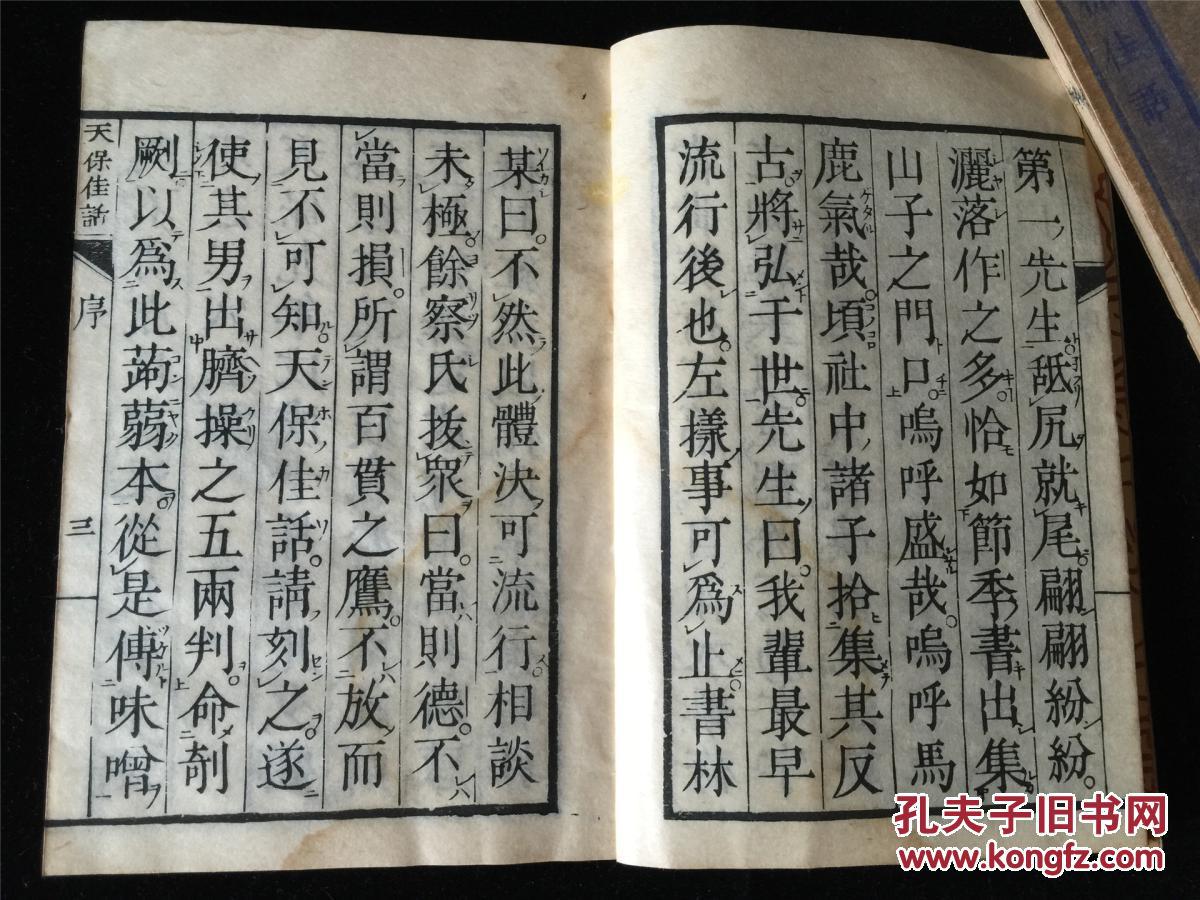 第一先生舐尻就尾翩翩紛紛。
灑落作之多。恰如節季書出集
山子之門口。嗚呼盛哉。嗚呼馬
鹿氣哉。頃社中諸子拾集其反
古。將弘于世。先生曰。我輩最早
流行後也。左樣事可爲止。書林
某曰。不然。此體決可流行。相談
未極。餘察氏拔衆曰。當則德。不
當則損。所謂百貫之鷹。不放而
見不可知。天保佳話。請刻之。遂
使其男出臍操之五兩判。命剞
劂。以爲此蒟蒻本。從是傅味噌
天保佳話
序
三
佳話
孔夫子旧书网
www.kongfz.com